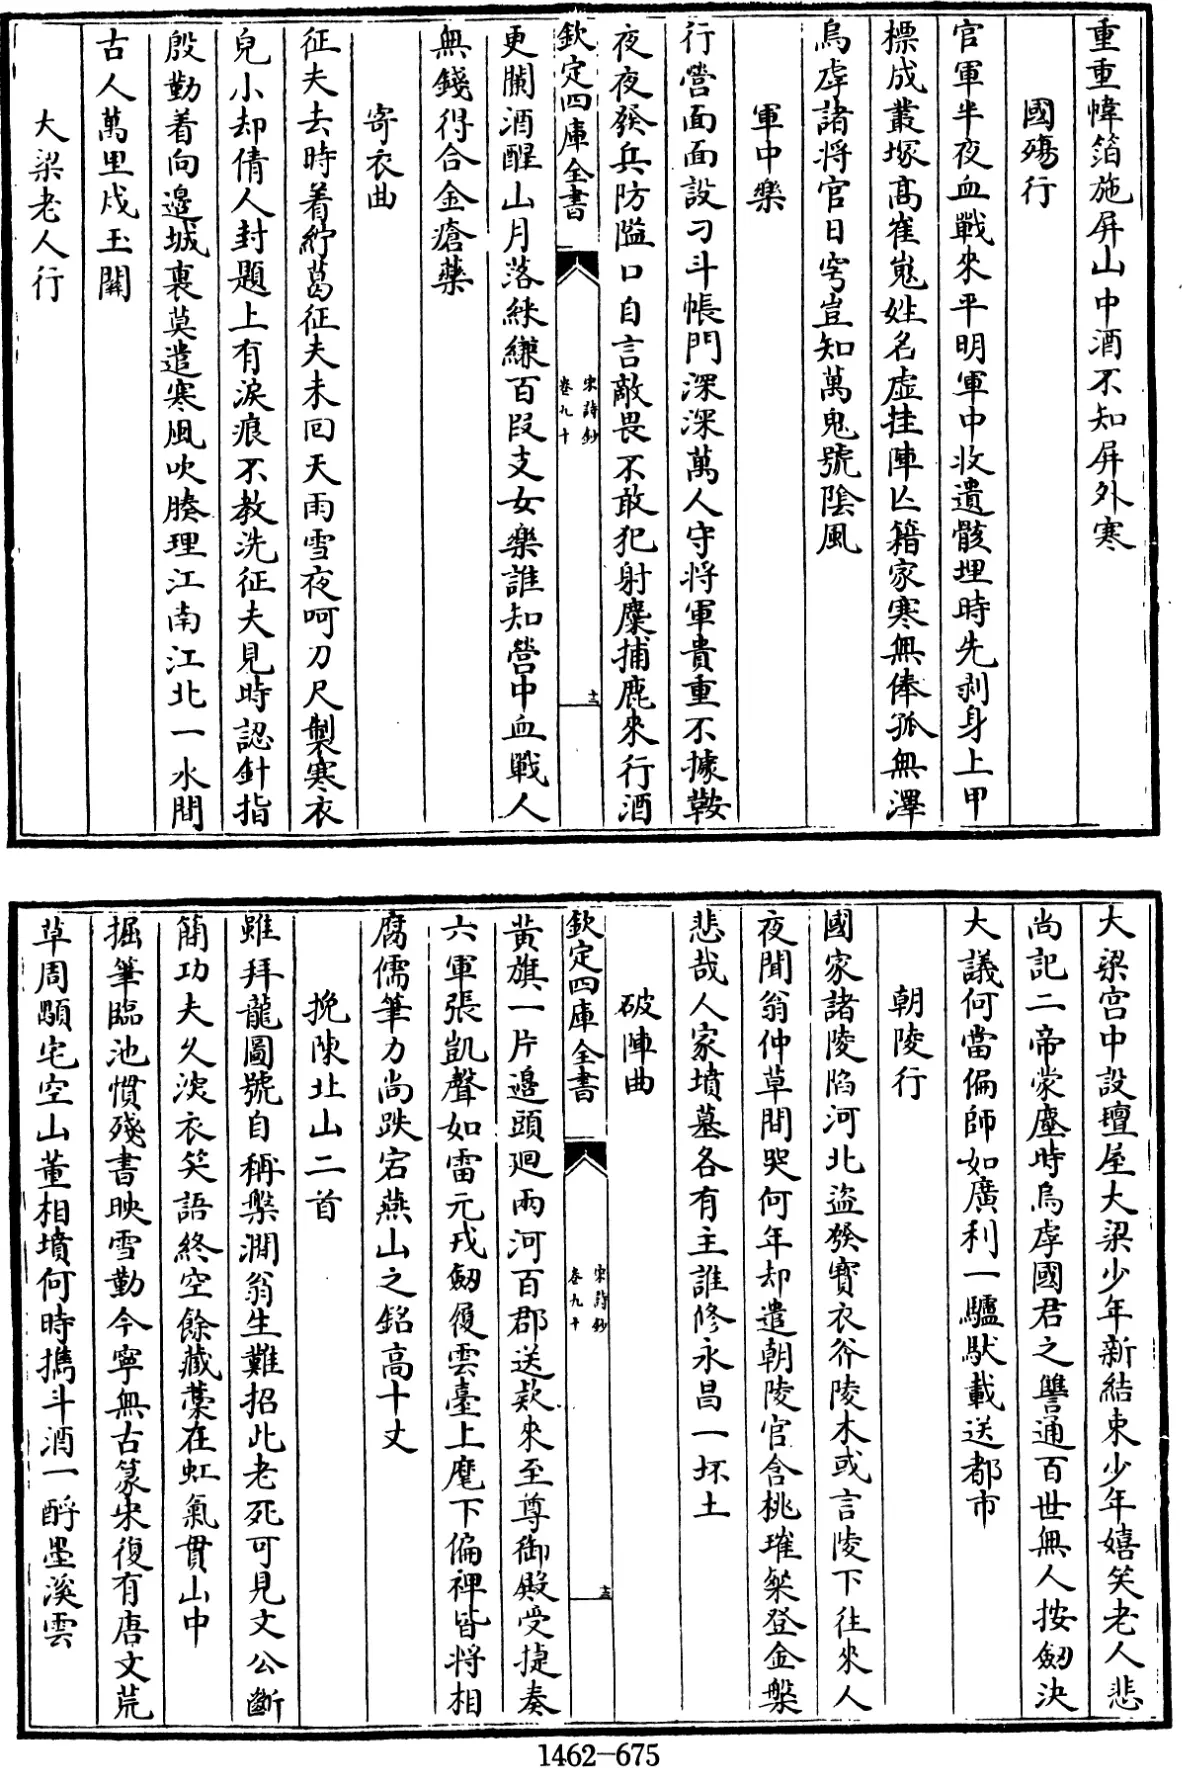 重重幃箔施屏山中酒不知屏外寒
國殤行
官軍半夜血戰來平明軍中收遺骸埋時先剥身上甲
標成叢塚髙崔嵬姓名虚挂陣亡籍家寒無俸孤無澤
烏虖諸將官日穹豈知萬鬼號陰風
軍中樂
行營面面設刁斗帳門深深萬人守將軍貴重不據鞍
夜夜發兵防隘口自言敵畏不敢犯射麋捕鹿來行酒
欽定四庫全書
宋詩鈔
卷九十
十二
更闌酒醒山月落綵縑百段支女樂誰知營中血戰人
無錢得合金瘡藥
寄衣曲
征夫去時着紵葛征夫未回天雨雪夜呵刀尺製寒衣
兒小却倩人封題上有淚痕不教洗征夫見時認針指
殷勤着向邉城裏莫遣寒風吹腠理江南江北一水間
古人萬里戍玉關
大梁老人行
大梁宫中設壇屋大梁少年新結束少年嬉笑老人悲
尚記二帝蒙塵時烏虖國君之讐通百世無人按劒决
大議何當偏師如廣利一驢馱載送都市
朝陵行
國家諸陵䧟河北盜發寶衣斧陵木或言陵下往來人
夜聞翁仲草間哭何年却遣朝陵官含桃璀粲登金槃
悲哉人家墳墓各有主誰修永昌一抔土
破陣曲
欽定四庫全書
宋詩鈔
卷九十
十三
黄旗一片邉頭廻兩河百郡送款來至尊御殿受捷奏
六軍張凱聲如雷元戎劒履雲臺上麾下偏裨皆將相
腐儒筆力尚跌宕燕山之銘高十丈
挽陳北山二首
雖拜龍圖號自稱槃澗翁生難招此老死可見文公斷
簡功夫久淡衣笑語終空餘藏藳在虹氣貫山中
掘筆臨池慣殘書映雪勤今寧無古篆宋復有唐文荒
草周顒宅空山董相墳何時攜斗酒一酹墨溪雲
1462-675